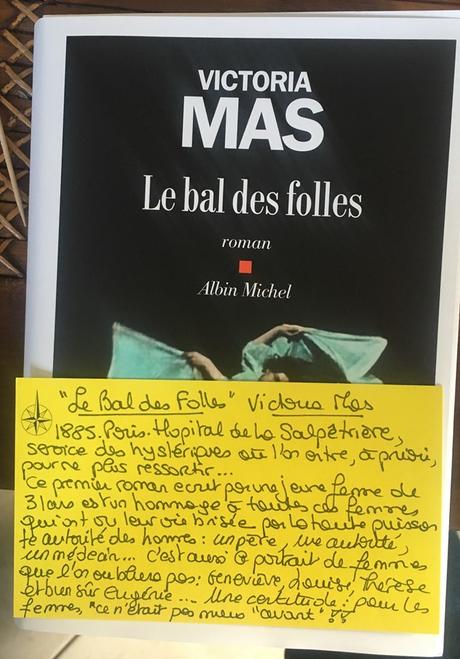 VICTORIA
MAS
Le bal des folles
roman
Albin Michel
"Le Bal des Folles" Victoria Mas
1885. Paris. Hopital de la Salpêtrière,
service des hystériques où l'on entre, à priori,
pour ne plus ressortir...
Ce premier roman ecrit par une jeune femme de
31 ans est un hommage à toutes ces femmes
qui ont vu leur vie brisée par la toute puissan
te autorité des hommes : un père, une autorité,
un médecin... c'est aussi le portrait de femmes
que l'on oubliera pas : Geneviève, Louise, Thérèse
et bien sûr Eugénie... Une certitude : pour les
femmes, "ce n'était pas mieux "avant" !!